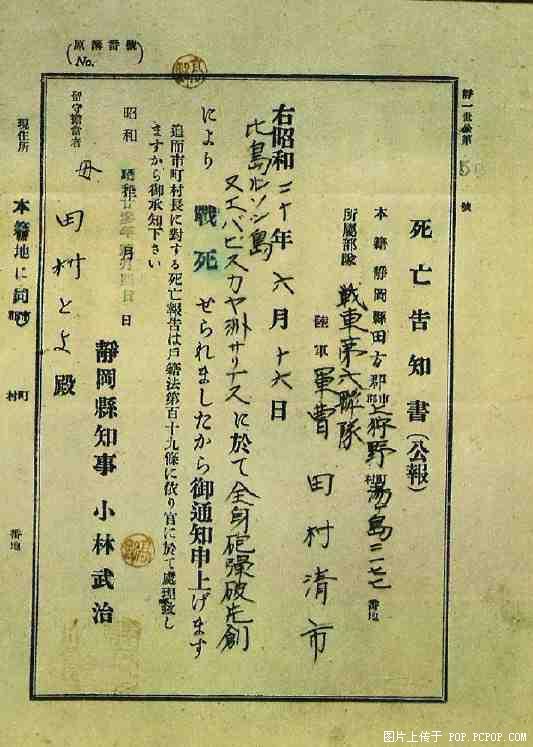 號
死亡告知書(公報)
本籍 靜岡縣田方郡上狩野村湯ヶ島二七七番地
所屬部隊 戦車第六聯隊
陸軍 軍曹 田村清市
右昭和二十年六月十六日
比島ルソン島
ヌエバビスカヤ洲サリナスに於て全身砲弾破片創
により 戰死 せられましたから御通知申上げます
追而市町村長に對する死亡報告は戸籍法第百十九條に依り官に於て處理致し
ますから御承知下さい
昭和 日
靜岡縣知事 小林武治
留守擔當者 母 田村とよ殿
現住所 本籍地に同じ 町村 番地
(原簿番號 No. )
图片上传于 POP.PCPOP.COM